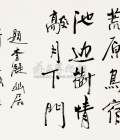 荒原鳥宿
池边樹僧
敲月下門
題李凝幽居